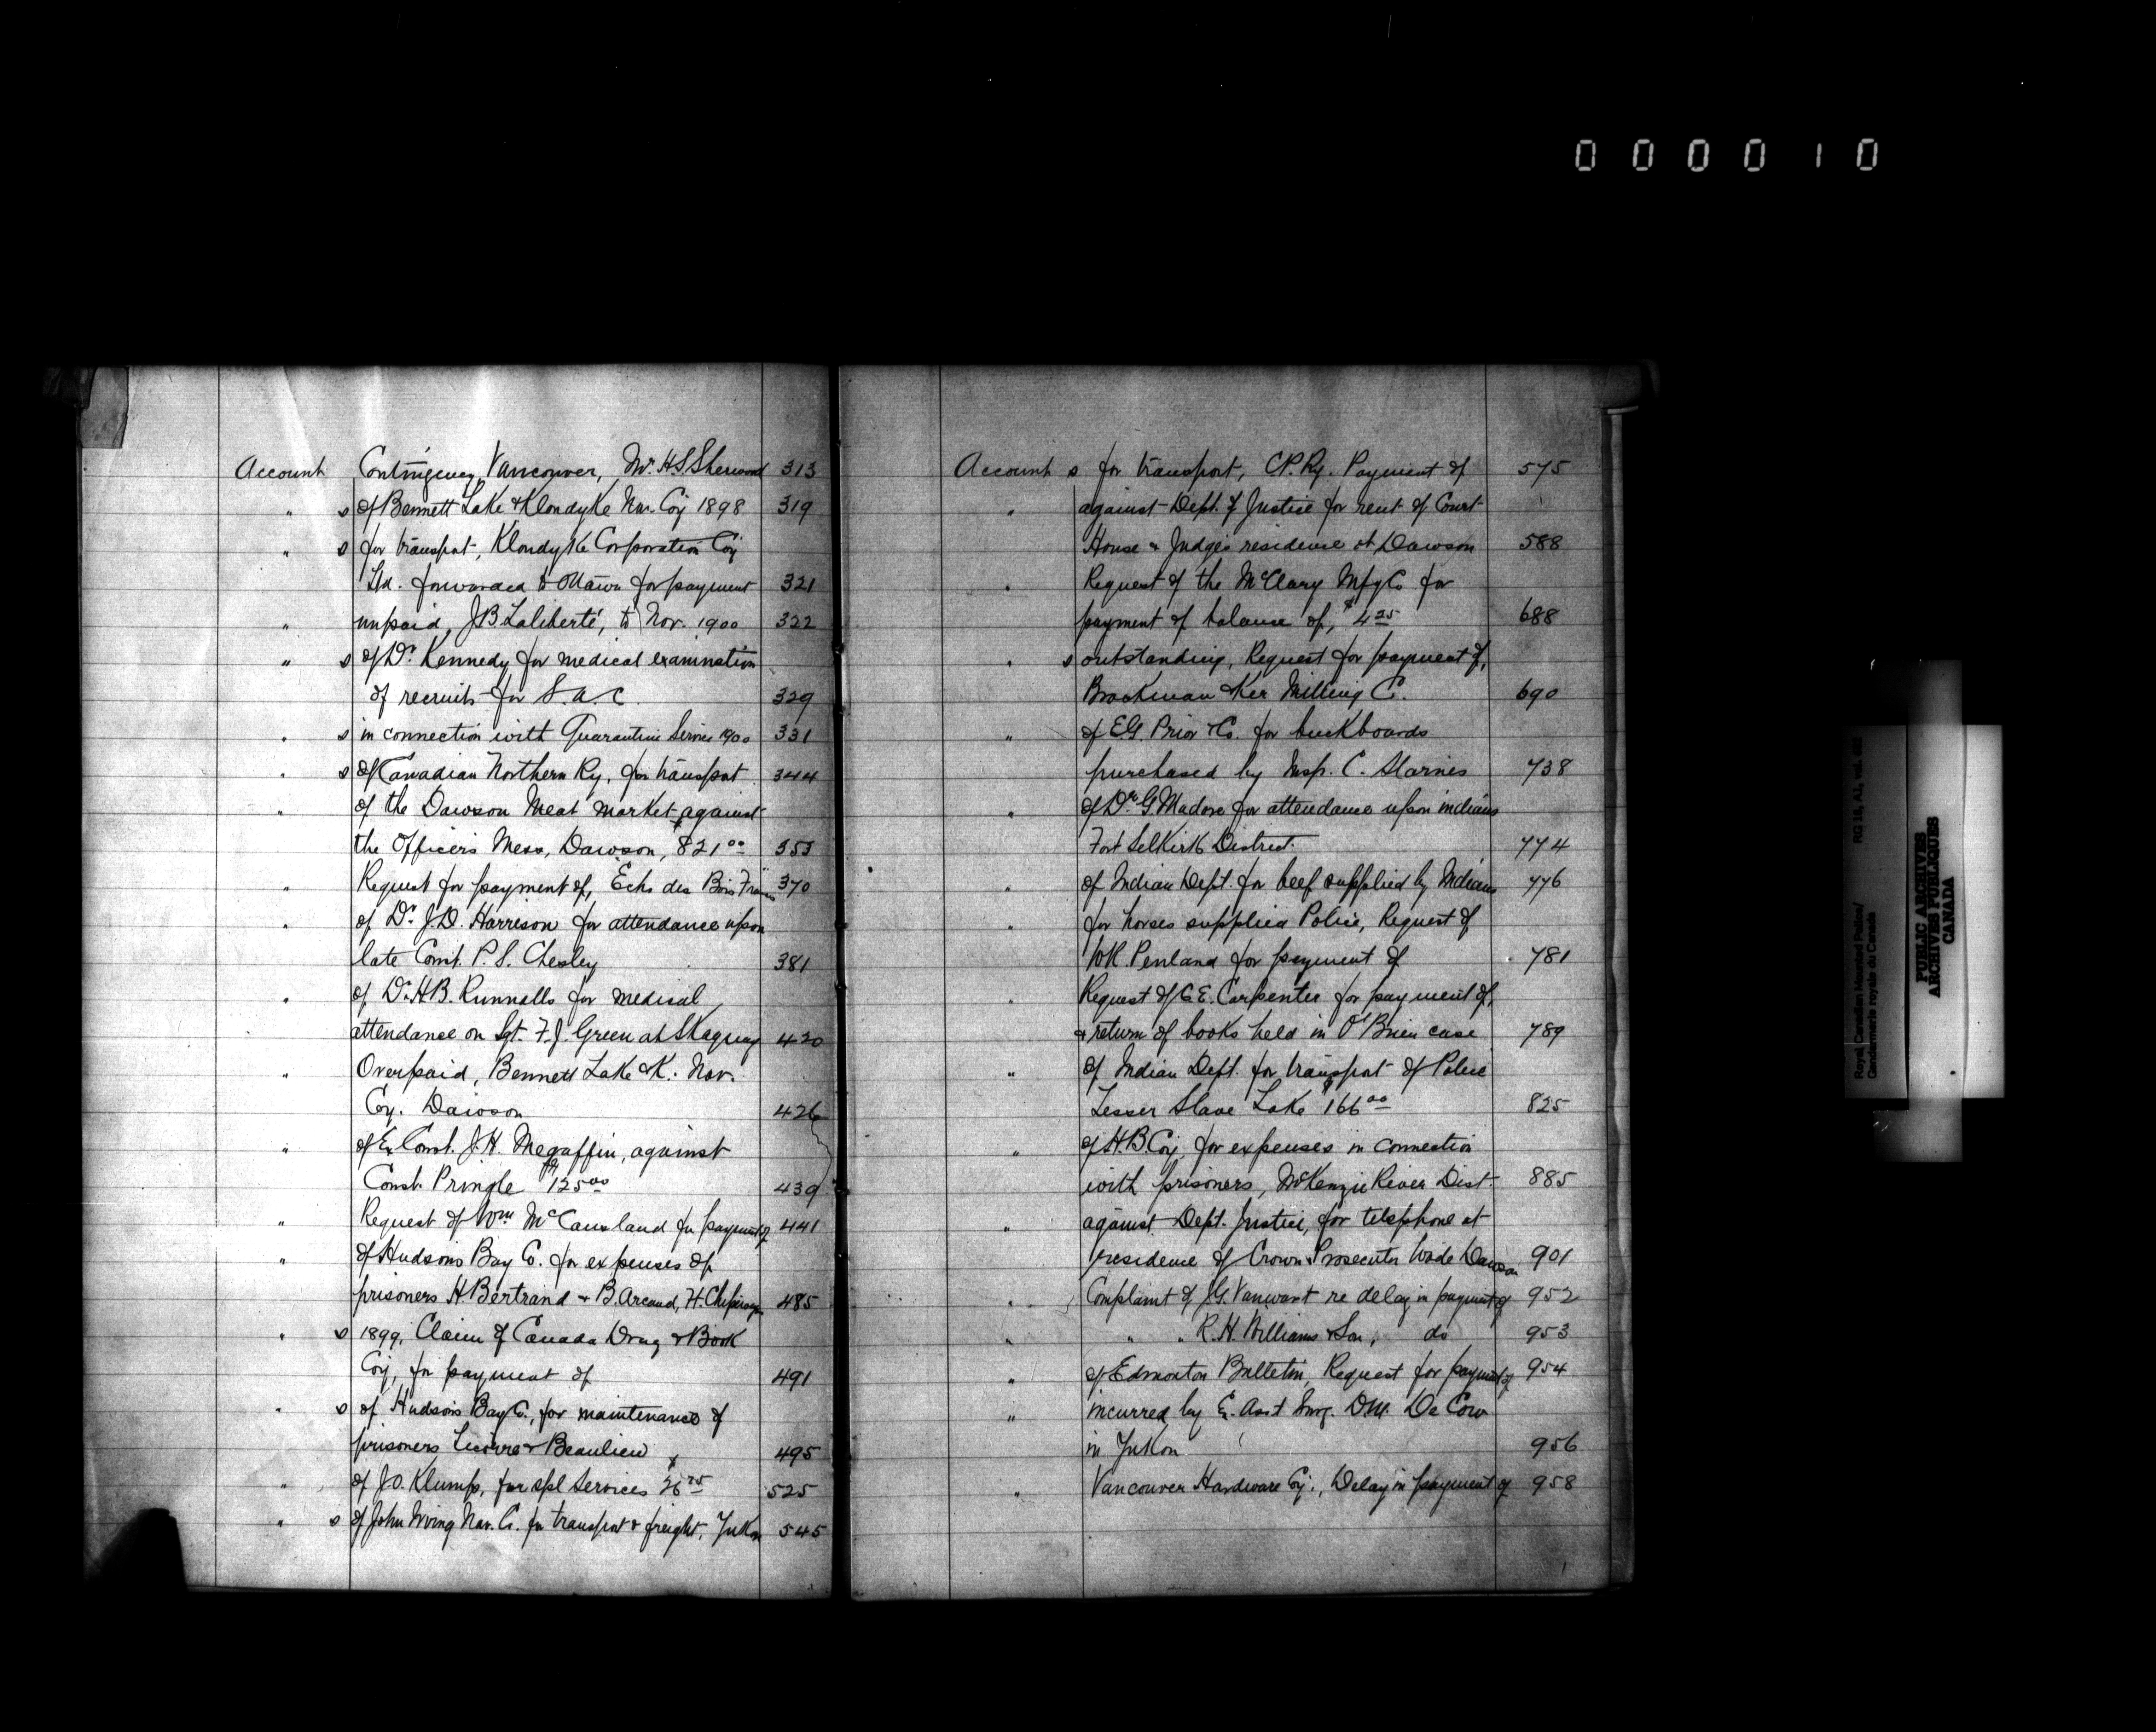 000010
Account Contingency, Vancouver, Mr. H.S. Sherwood 313
" s of Bennett Lake & Klondyke Nav. Coy 1898 319
" s for transport, Klondyke Corporation Coy
Ltd. forwarded to Ottawa for payment 321
" unpaid, J.B. Laliberté, to Nov. 1900 322
" s of Dr. Kennedy for medical examination
of recruits for S.A.C. 329
" s in connection with Quarantine Service 1900 331
" s of Canadian Northern Ry, for transport 344
" of the Dawson Meat market against
the Officers Mess, Dawson, $821.00 353
" Request for payment of, "Echo des Bois Francs" 370
" of Dr. J.D. Harrison for attendance upon
late Const. P.S. Chesley 381
" of Dr. H.B. Runnalls for medical
attendance on Sgt. F.J. Green at Skaguay 420
" Overpaid, Bennett Lake & K. Nav.
Coy. Dawson 426
" of Ex Const. J.H. Megaffin, against
Const. Pringle $125.00 439
" Request of Wm McCausland for payment of 441
" of Hudsons Bay Co. for expenses of
prisoners H. Bertrand & B. Arcand, Ft. Chipewyan 485
" s 1899, Claim of Canada Drug & Book
Coy, for payment of 491
" s of Hudsons Bay Co., for maintenance of
prisoners & Beaulieu 495
" of J.O. Klump, for spl services $26.75 525
" s of John Irving Nav. Co. for transport & freight, Yukon 545
Account s for transport, C.P. Ry. Payment of 575
" against Dept. of Justice for rent of Court
House & Judge's residence at Dawson 588
" Request of the McClary Mfg Co for
payment of balance of, $4.25 688
" s outstanding, Request for payment of,
Brackman & Ker Milling Co. 690
" of E.G. Prior & Co. for buckboards
purchased by Insp. C. Starnes 738
" of Dr. G. Madore for attendance upon indians
Fort Selkirk District. 774
" of Indian Dept. for beef supplied by Indians 776
" for horses supplied Police, Request of
W.R. Penland for payment of 781
" Request of C.E. Carpenter for payment of,
& return of books held in O'Brien case 789
" of Indian Dept. for transport of Police
Lesser Slave Lake $166.00 825
" of H.B. Coy, for expenses in connection
with prisoners, McKenzie River Dist. 885
" against Dept. Justice, for telephone at
residence of Crown Prosecutor Wade Dawson 901
" Complaint of J.G. Vanwart re delay in payment of 952
" " " R.H. Williams & Son, do 953
" of Edmonton Bulletin, Request for payment of 954
" incurred by Ex. Asst Surg. D.M. De Cow
in Yukon 956
" Vancouver Hardware Coy., Delay in payment of 958
Royal Canadian Mounted Police/
Gendarmerie royale du Canada
RG 18, A1, vol.
PUBLIC ARCHIVES
ARCHIVES PUBLIQUES
CANADA